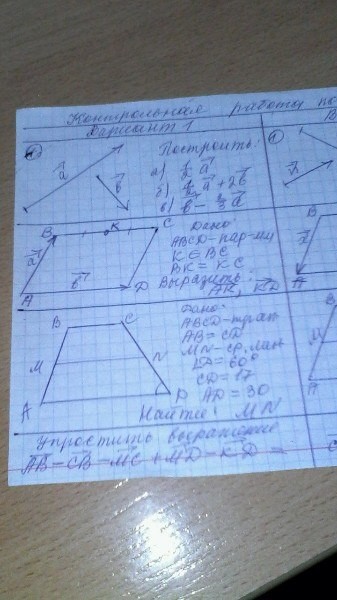 Контрольная работа по
Вариант 1
1
a
b
Построить:
а) 1/2 a
б) a + 2b
в) b - a
B K C
a
b
A D
Дано:
ABCD - пар-мм
K ∈ BC
BK = KC
Выразить:
AK, KD
B C
M N
A D
Дано:
ABCD - трап
AB = CD
MN - ср. лин
∠D = 60°
CD = 17
AD = 30
Найти: MN
Упростить выражение
AB - CB - MC + MD - KD =
1
B
A
M
A
C